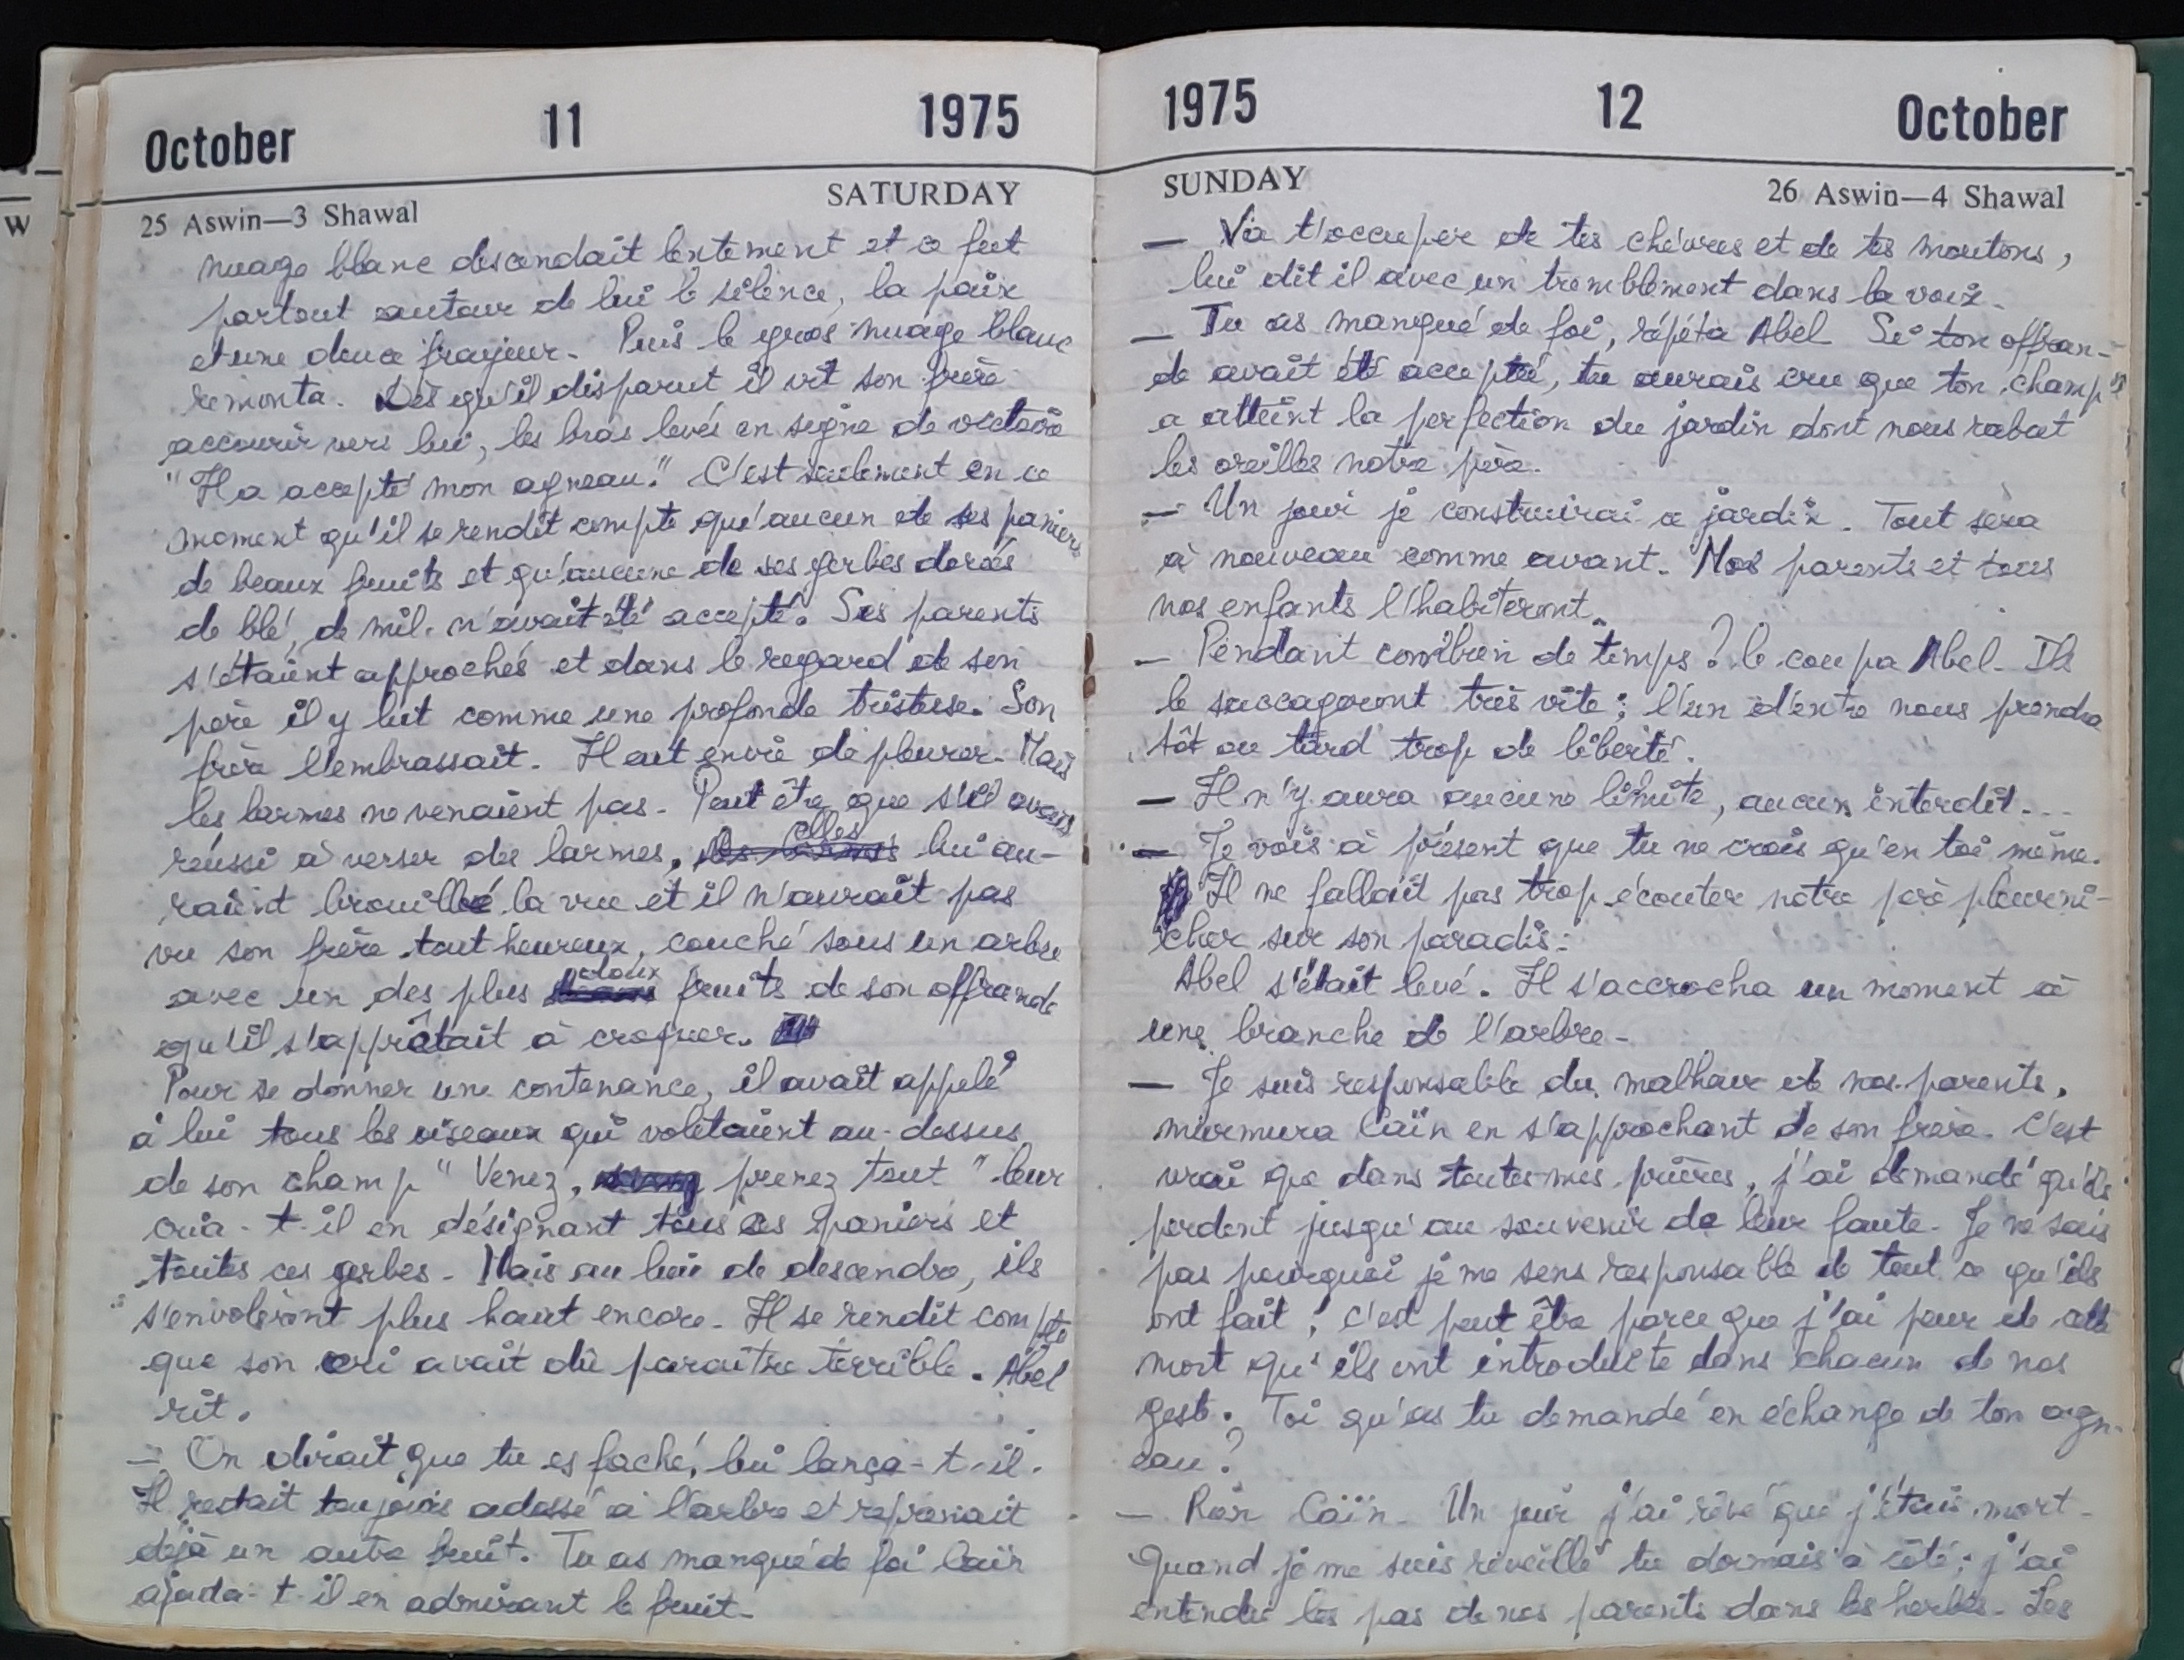 October 11 1975
25 Aswin—3 Shawal SATURDAY
nuage blanc descendait lentement et ce fut
partout autour de lui le silence, la paix
et une douce frayeur. Puis le gros nuage blanc
remonta. Dès qu'il disparut il vit son frère
accourir vers lui, les bras levés en signe de victoire
"Il a accepté mon agneau." C'est seulement en ce
moment qu'il se rendit compte qu'aucun de ses paniers
de beaux fruits et qu'aucune de ses gerbes dorées
de blé, de mil. n'avait été accepté. Ses parents
s'étaient approchés et dans le regard de son
père il y lut comme une profonde tristesse. Son
frère l'embrassait. Il eut envie de pleurer. Mais
les larmes ne venaient pas. Peut être que s'il avais
réussi à verser des larmes, elles lui au-
raient brouillé la vue et il n'aurait pas
vu son frère tout heureux, couché sous un arbre
avec un des plus doux fruits de son offrande
qu'il s'apprêtait à croquer.
Pour se donner une contenance, il avait appelé
à lui tous les oiseaux qui voletaient au-dessus
de son champ "Venez, prenez tout" leur
cria-t-il en désignant tous ces paniers et
toutes ces gerbes. Mais au lieu de descendre, ils
s'envolèrent plus haut encore. Il se rendit compte
que son cri avait dû paraître terrible. Abel
rit.
— On dirait que tu es faché, lui lança-t-il.
Il restait toujours adossé à l'arbre et reprenait
déjà un autre fruit. Tu as manqué de foi Caïn
ajouta-t-il en admirant le fruit.
W
1975 12 October
SUNDAY 26 Aswin—4 Shawal
— Va t'occuper de tes chèvres et de tes moutons,
lui dit il avec un tremblement dans la voix.
— Tu as manqué de foi, répéta Abel Si ton offran-
de avait été acceptée, tu aurais cru que ton champ
a atteint la perfection du jardin dont nous rabat
les oreilles notre père.
— Un jour je construirai ce jardin. Tout sera
à nouveau comme avant. Nos parents et tous
nos enfants l'habiteront.
— Pendant combien de temps? le coupa Abel. Ils
le saccageront très vite; l'un d'entre nous prendra
tôt ou tard trop de liberté.
— Il n'y aura aucune limite, aucun interdit...
— Je vois à présent que tu ne crois qu'en toi même.
Il ne fallait pas trop écouter notre père pleurni-
cher sur son paradis.
Abel s'était levé. Il s'accrocha un moment à
une branche de l'arbre.
— Je suis responsable du malheur de nos parents,
murmura Caïn en s'approchant de son frère. C'est
vrai que dans toutes mes prières, j'ai demandé qu'ils
perdent jusqu'au souvenir de leur faute. Je ne sais
pas pourquoi je me sens responsable de tout ce qu'ils
ont fait; c'est peut être parce que j'ai peur de cette
mort qu'ils ont introduite dans chacun de nos
geste. Toi qu'as tu demandé en échange de ton agn-
eau?
— Rien Caïn. Un jour j'ai rêvé que j'étais mort.
Quand je me suis réveillé tu dormais à côté; j'ai
entendu les pas de nos parents dans les herbes. Les